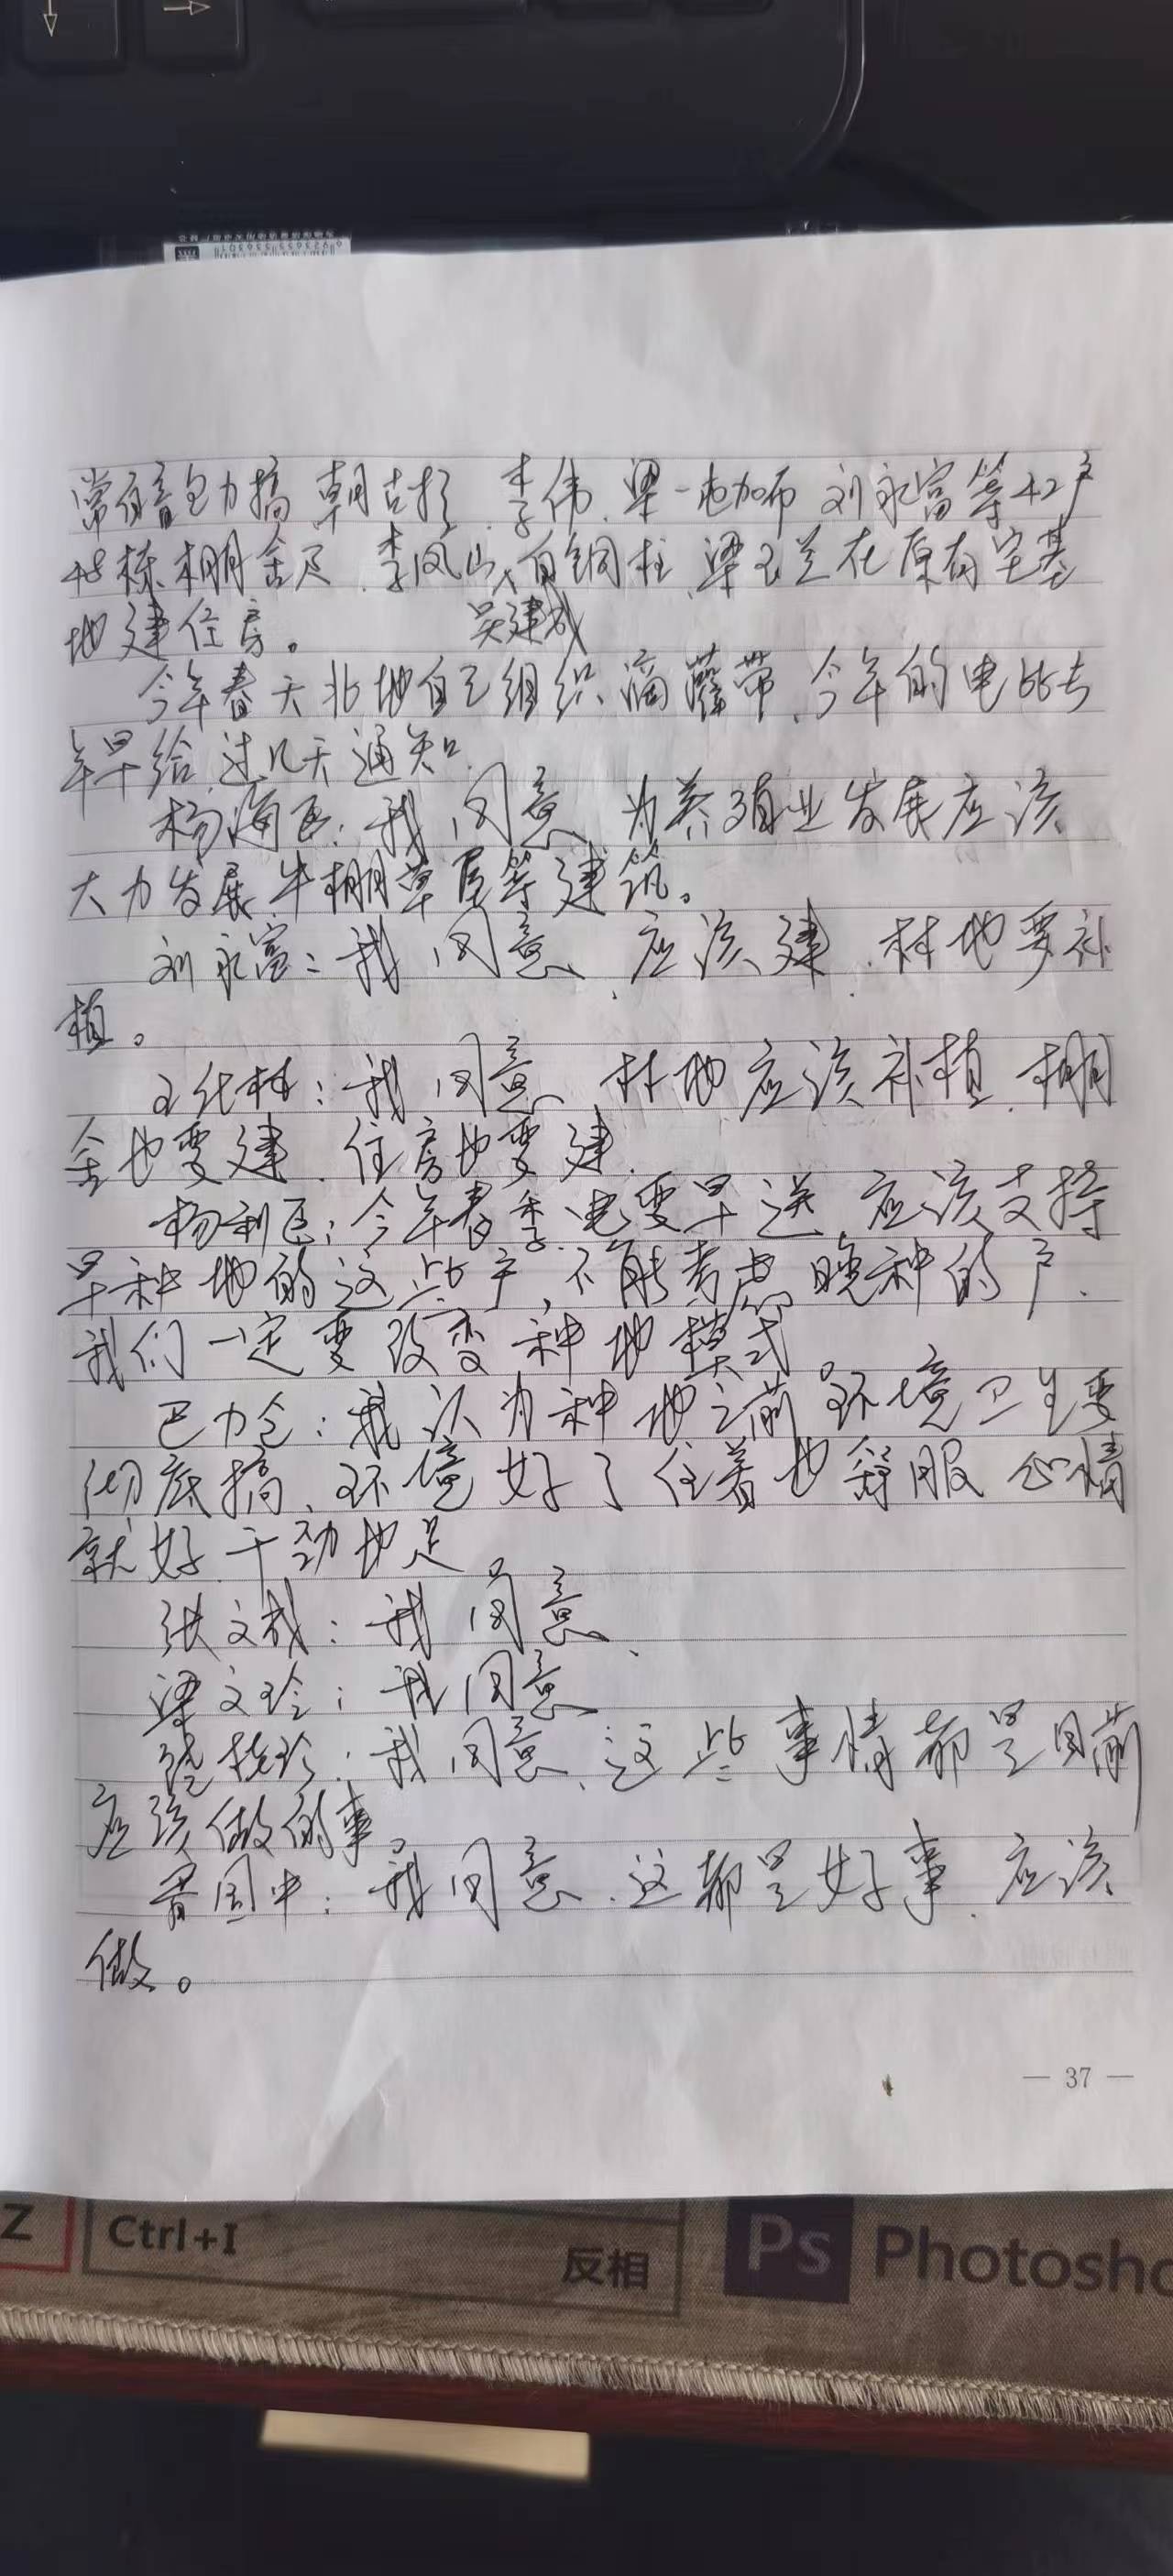 李伟、梁一 加布 刘永富等42户
48栋棚舍及 李凤山、白钢柱、梁玉兰在原有宅基
吴建成
地建住房。
今年春天北地自己组织滴灌带、今年的电比去
年早给、过几天通知、
杨海臣：我同意、为养殖业发展应该
大力发展牛棚草屋等建筑。
刘永富：我同意、应该建、林地要补
植。
王化林：我同意、林地应该补植、棚
舍也要建、住房也要建、
杨利臣：今年春季电要早送、应该支持
早种地的这些户，不能考虑晚种的户、
我们一定要改变种地模式。
巴力仓：我认为种地之前环境卫生要
彻底搞、环境好了住着也舒服心情
就好、干劲也足、
张文成：我同意、
梁文玲：我同意、
我同意、这些事情都是目前
应该做的事。
国中：我同意、这都是好事、应该
做。
— 37 —
Z
Ctrl+I
反相
Ps
Photosho